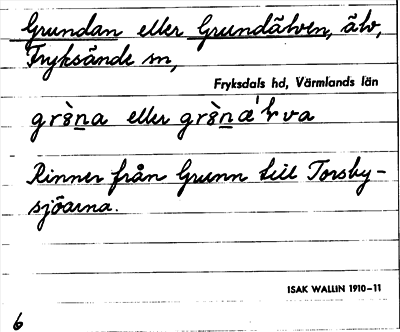 Grundan eller Grundälven, älv,
Fryksände sn,
Fryksdals hd, Värmlands län
grȣ̀na eller grȣ̀næ'ɽva
Rinner från Grunn till Torsby-
sjöarna.
ISAK WALLIN 1910-11
6